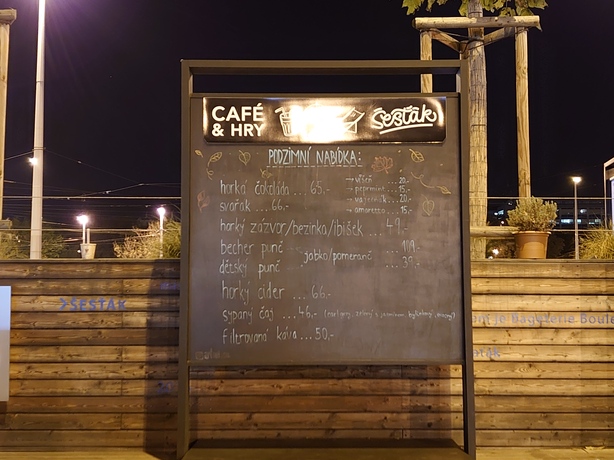 CAFÉ
& HRY
Šesťák
PODZIMNÍ NABÍDKA:
horká čokoláda ... 65,-
→ višeň ... 20,-
→ peprmint ... 15,-
→ vaječňák ... 20,-
→ amaretto ... 15,-
svařák ... 66,-
horký zázvor/bezinka/ibišek ... 49,-
becher punč
jablko/pomeranč
dětský punč
... 39,-
horký cider ... 66,-
sypaný čaj ... 46,-
filtrovaná káva ... 50,-
>ŠESŤÁK